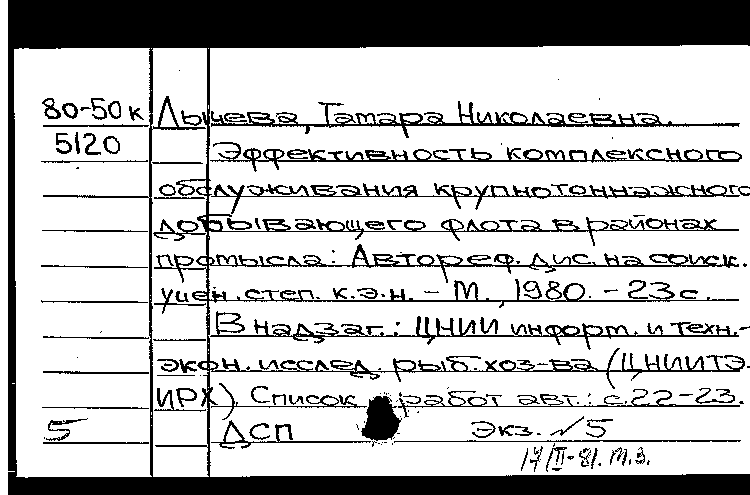 80-50к Лыщева, Тамара Николаевна.
5120 Эффективность комплексного
обслуживания крупнотоннажного
добывающего флота в районах
промысла: Автореф. дис. на соиск.
учен. степ. к.э.н. – М., 1980. – 23 с.
В надзаг.: ЦНИИ информ. и техн.-
экон. исслед. рыб. хоз-ва (ЦНИИТЭ
ИРХ). Список работ авт.: с. 22-23.
5 ДСП Экз. №5
17/II-81. М.З.